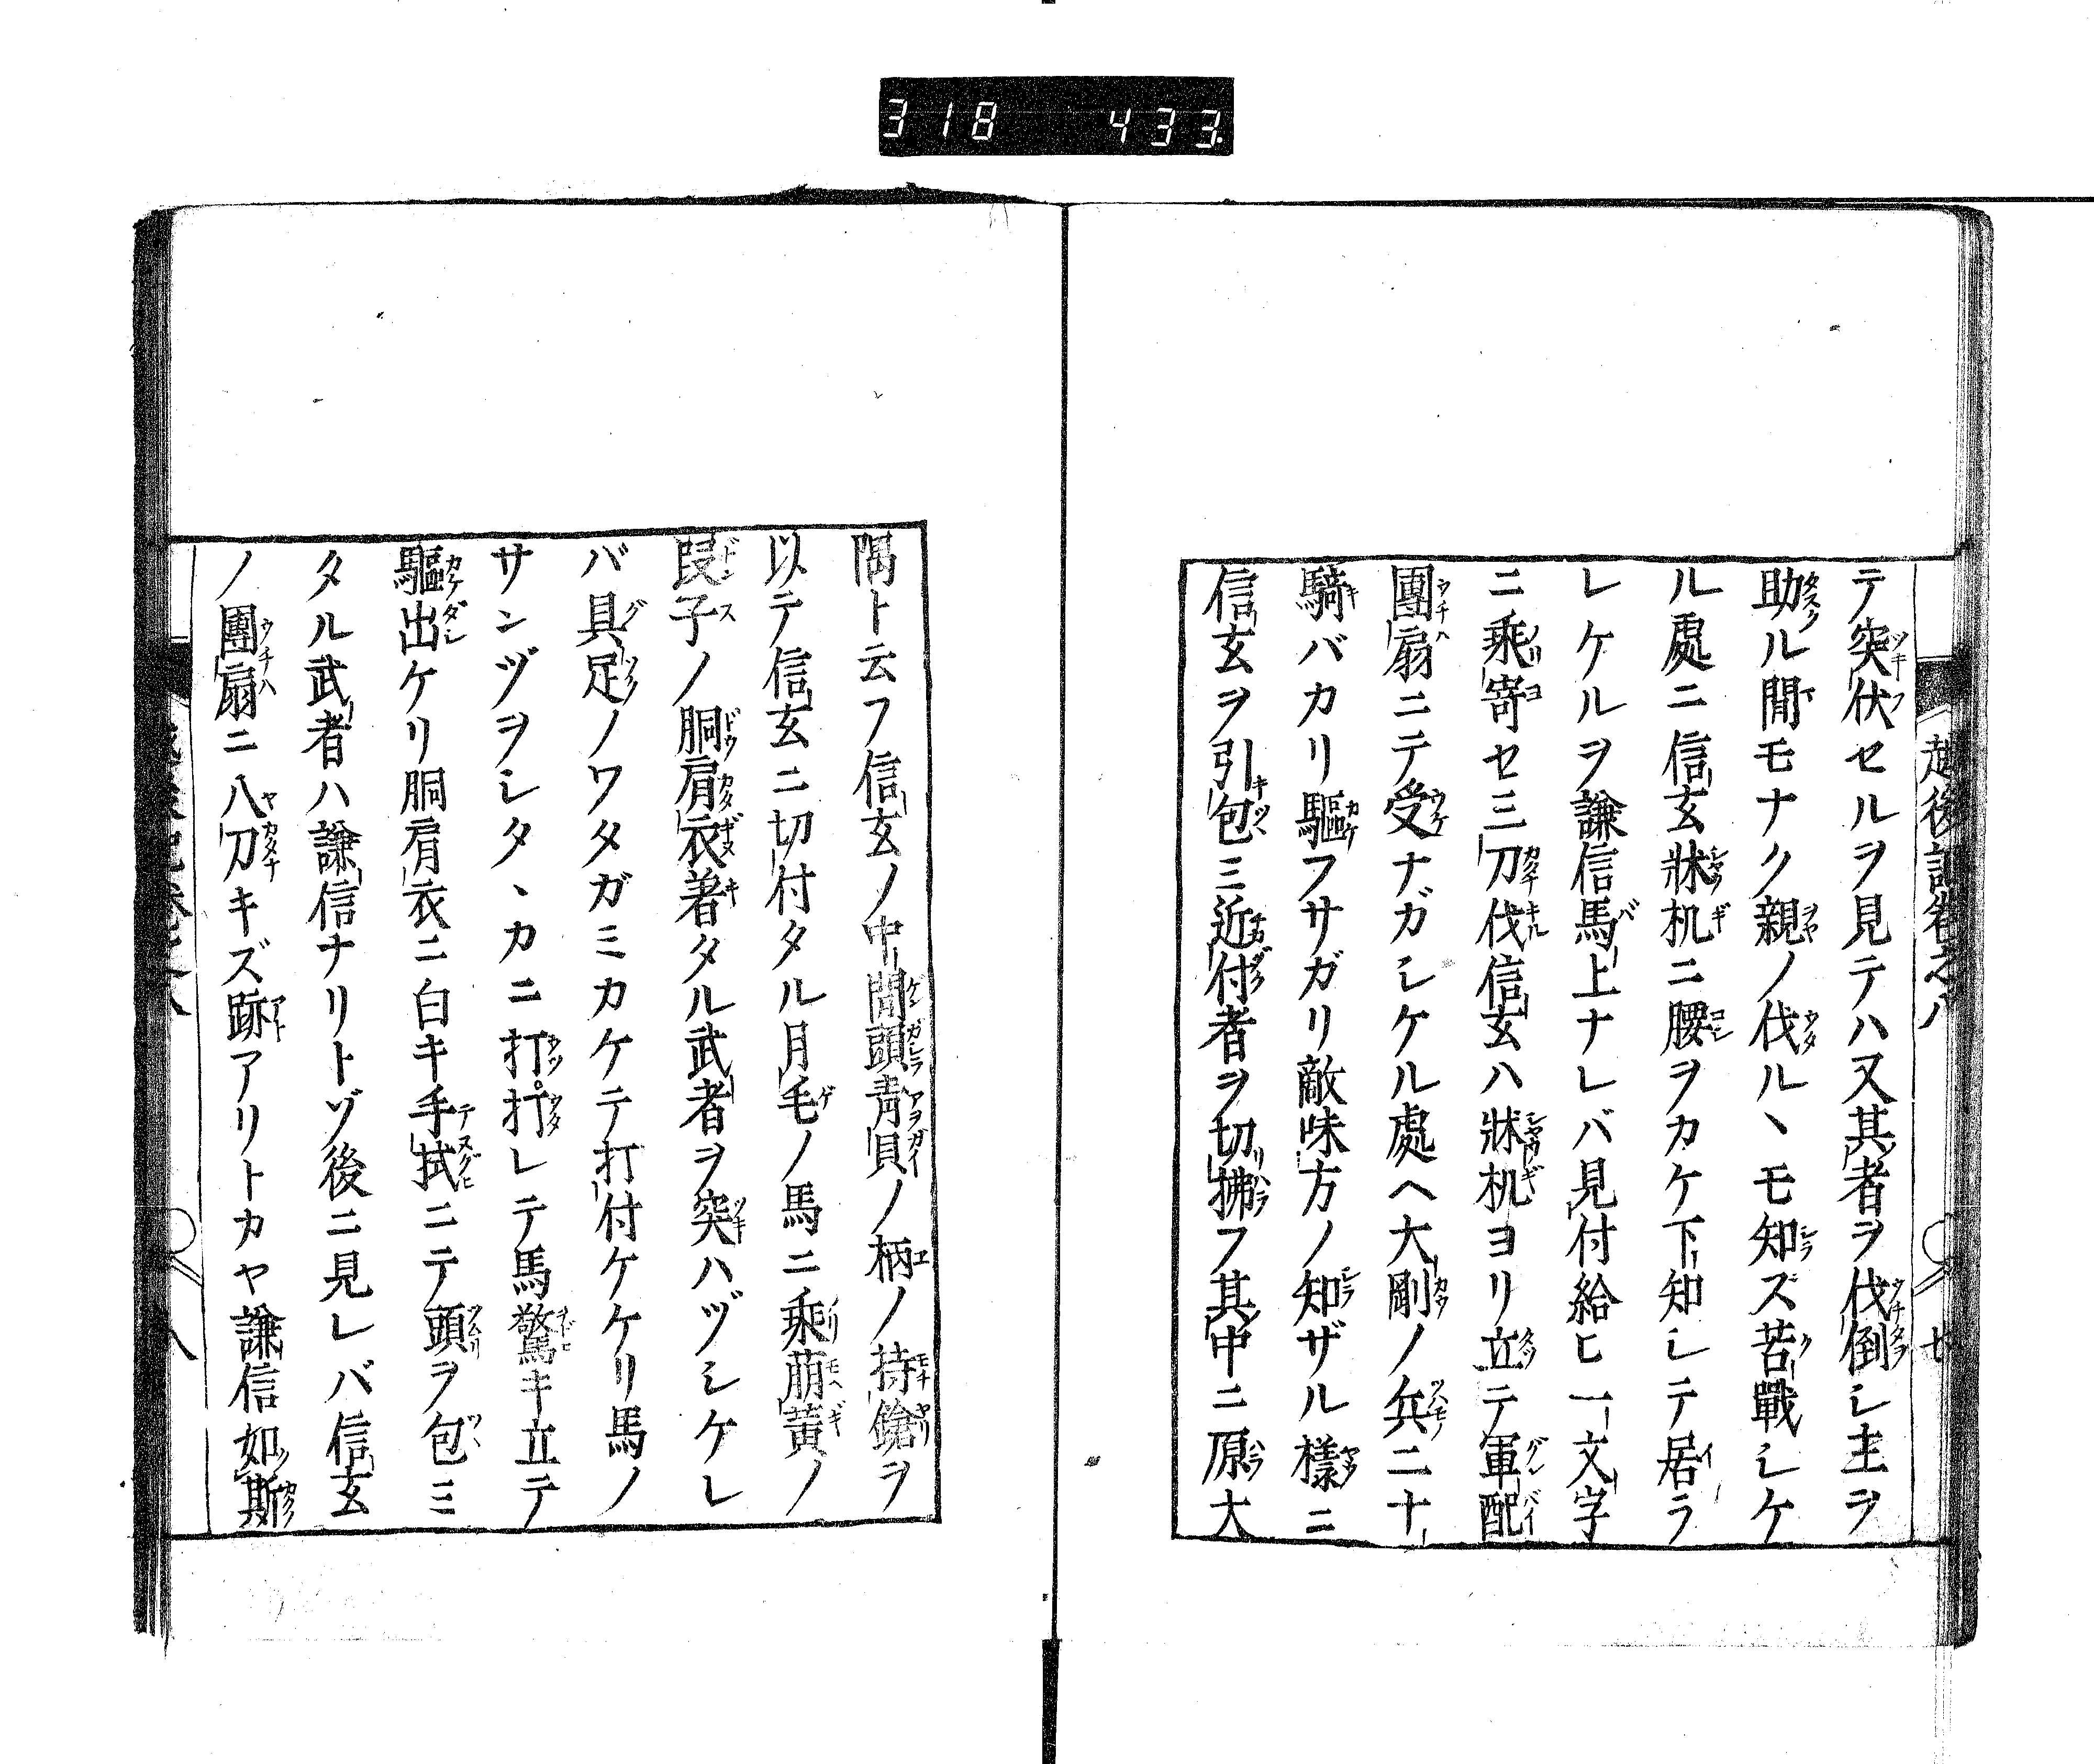 318 433
越後記卷之八 七
テ突伏セルヲ見テハ又其者ヲ伐倒シ主ヲ
助ル間モナク親ノ伐ルヽモ知ズ苦戰シケ
ル處ニ信玄牀机ニ腰ヲカケ下知シテ居ラ
レケルヲ謙信馬上ナレバ見付給ヒ一文字
ニ乘寄セ三刀伐信玄ハ牀机ヨリ立テ軍配
團扇ニテ受ナガシケル處ヘ大剛ノ兵二十
騎バカリ驅フサガリ敵味方ノ知ザル樣ニ
信玄ヲ引包ミ近付者ヲ切拂フ其中ニ原大
隅ト云フ信玄ノ中間頭青貝ノ柄ノ持鎗ヲ
以テ信玄ニ切付タル月毛ノ馬ニ乘萠黃ノ
段子ノ胴肩衣著タル武者ヲ突ハヅシケレ
バ具足ノワタガミカケテ打付ケケリ馬ノ
サンヅヲシタヽカニ打打レテ馬驚キ立テ
驅出ケリ胴肩衣ニ白キ手拭ニテ頭ヲ包ミ
タル武者ハ謙信ナリトゾ後ニ見レバ信玄
ノ團扇ニ八刀キズ跡アリトカヤ謙信如斯
八